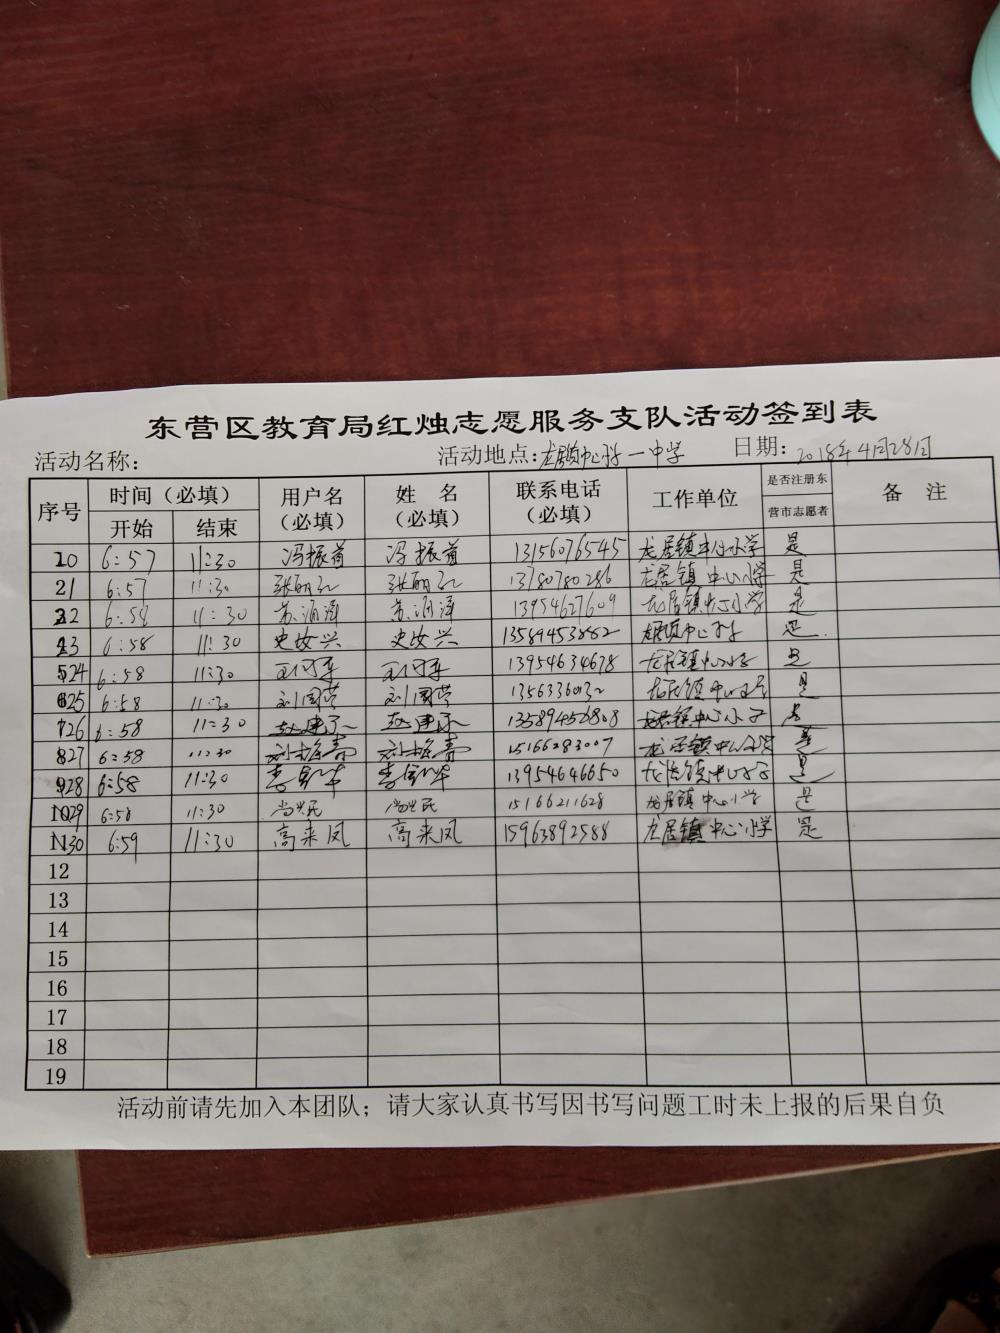 东营区教育局红烛志愿服务支队活动签到表
活动名称： 活动地点：龙居镇中心 一中学 日期：2018年4月28日
序号 时间（必填） 开始 结束 用户名（必填） 姓 名（必填） 联系电话（必填） 工作单位 是否注册东营市志愿者 备 注
20 6:57 11:30 冯振首 冯振首 13156076545 龙居镇中心小学 是
21 6:57 11:30 张丽红 张丽红 13780780286 龙居镇中心小学 是
22 6:58 11:30 苏涌泽 苏涌泽 13954627609 龙居镇中心小学 是
23 6:58 11:30 史汝兴 史汝兴 13589453862 龙居镇中心小学 是
24 6:58 11:30 13954634678 龙居镇中心小学 是
25 6:58 11:30 刘国荣 刘国荣 龙居镇中心小学 是
26 6:58 11:30 13589452808 龙居镇中心小学 是
27 6:58 11:30 15166283007 龙居镇中心小学 是
28 6:58 11:30 13954646650 龙居镇中心小学 是
29 6:58 11:30 尚兴民 尚兴民 15166211628 龙居镇中心小学 是
30 6:59 11:30 高来凤 高来凤 15963892588 龙居镇中心小学 是
12
13
14
15
16
17
18
19
活动前请先加入本团队；请大家认真书写因书写问题工时未上报的后果自负